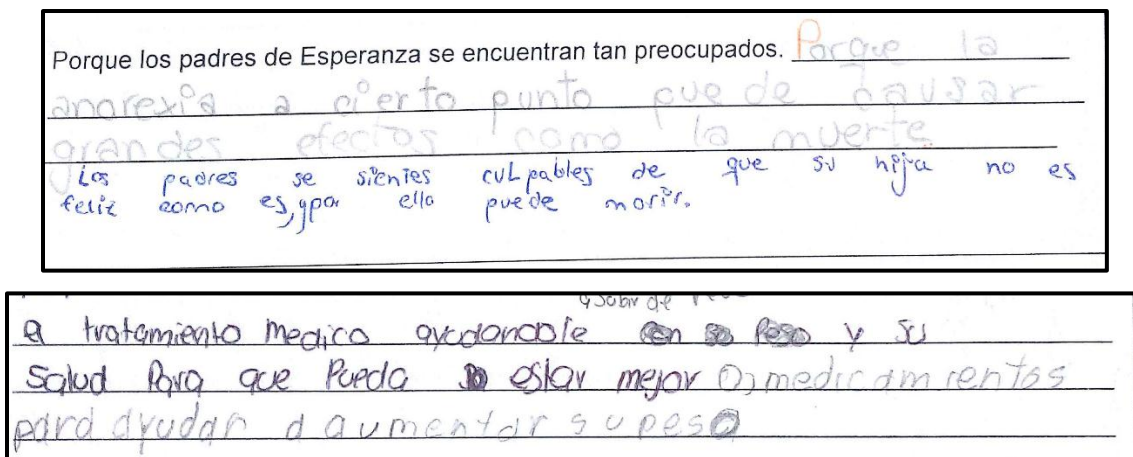 Porque los padres de Esperanza se encuentran tan preocupados. Porque la
anorexia a cierto punto puede causar
grandes efectos como la muerte
Los padres se sientes culpables de que su hija no es
feliz como es, y por ello puede morir.
a tratamiento medico ayudandole y su
Salud Para que Pueda estar mejor O, medicamientos
para ayudar a aumentar su peso